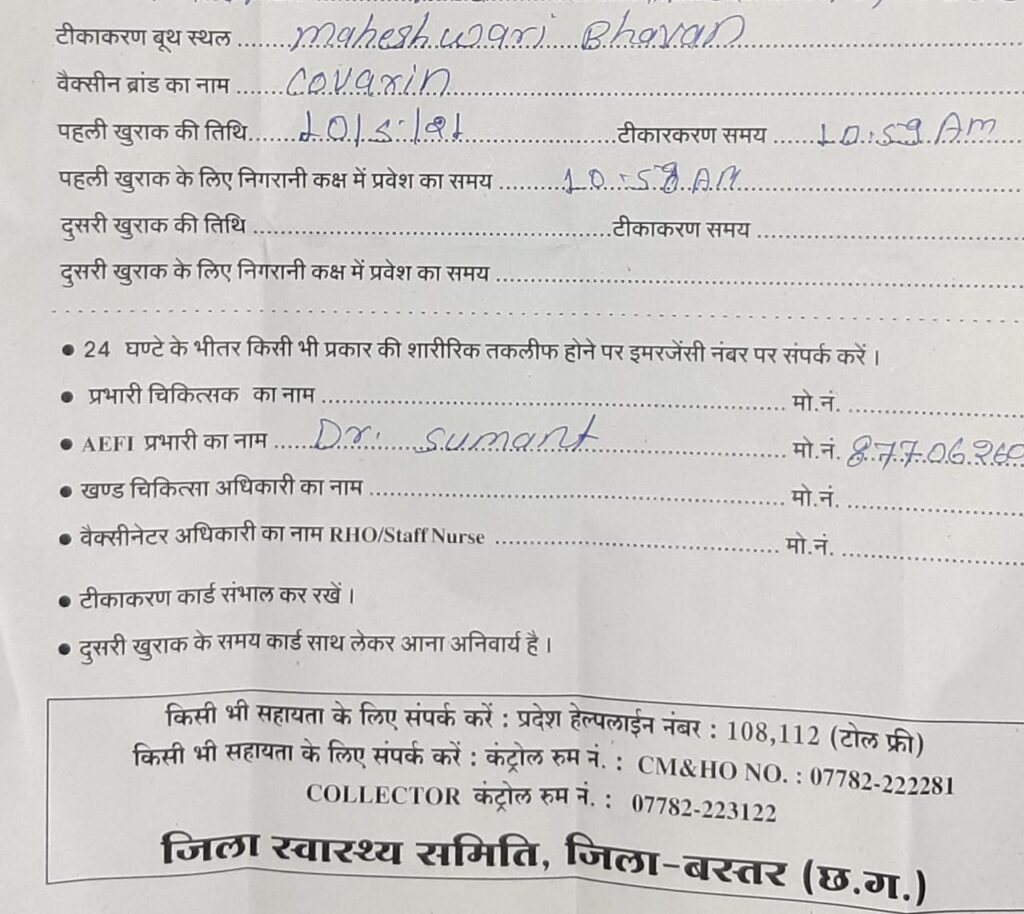 टीकाकरण बूथ स्थल ........ Maheshwari Bhavan
वैक्सीन ब्रांड का नाम ........ covaxin
पहली खुराक की तिथि........ 10/5/21 ........टीकारकरण समय ........ 10:59 AM
पहली खुराक के लिए निगरानी कक्ष में प्रवेश का समय ........ AM
दुसरी खुराक की तिथि ........टीकाकरण समय ........
दुसरी खुराक के लिए निगरानी कक्ष में प्रवेश का समय ........
• 24 घण्टे के भीतर किसी भी प्रकार की शारीरिक तकलीफ होने पर इमरजेंसी नंबर पर संपर्क करें ।
• प्रभारी चिकित्सक का नाम ........ मो.नं. ........
• AEFI प्रभारी का नाम ........ Dr. Sumant ........ मो.नं. 8770626
• खण्ड चिकित्सा अधिकारी का नाम ........ मो.नं. ........
• वैक्सीनेटर अधिकारी का नाम RHO/Staff Nurse ........ मो.नं. ........
• टीकाकरण कार्ड संभाल कर रखें ।
• दुसरी खुराक के समय कार्ड साथ लेकर आना अनिवार्य है ।
किसी भी सहायता के लिए संपर्क करें : प्रदेश हेल्पलाईन नंबर : 108,112 (टोल फ्री)
किसी भी सहायता के लिए संपर्क करें : कंट्रोल रुम नं. : CM&HO NO. : 07782-222281
COLLECTOR कंट्रोल रुम नं. : 07782-223122
जिला स्वास्थ्य समिति, जिला-बस्तर (छ.ग.)